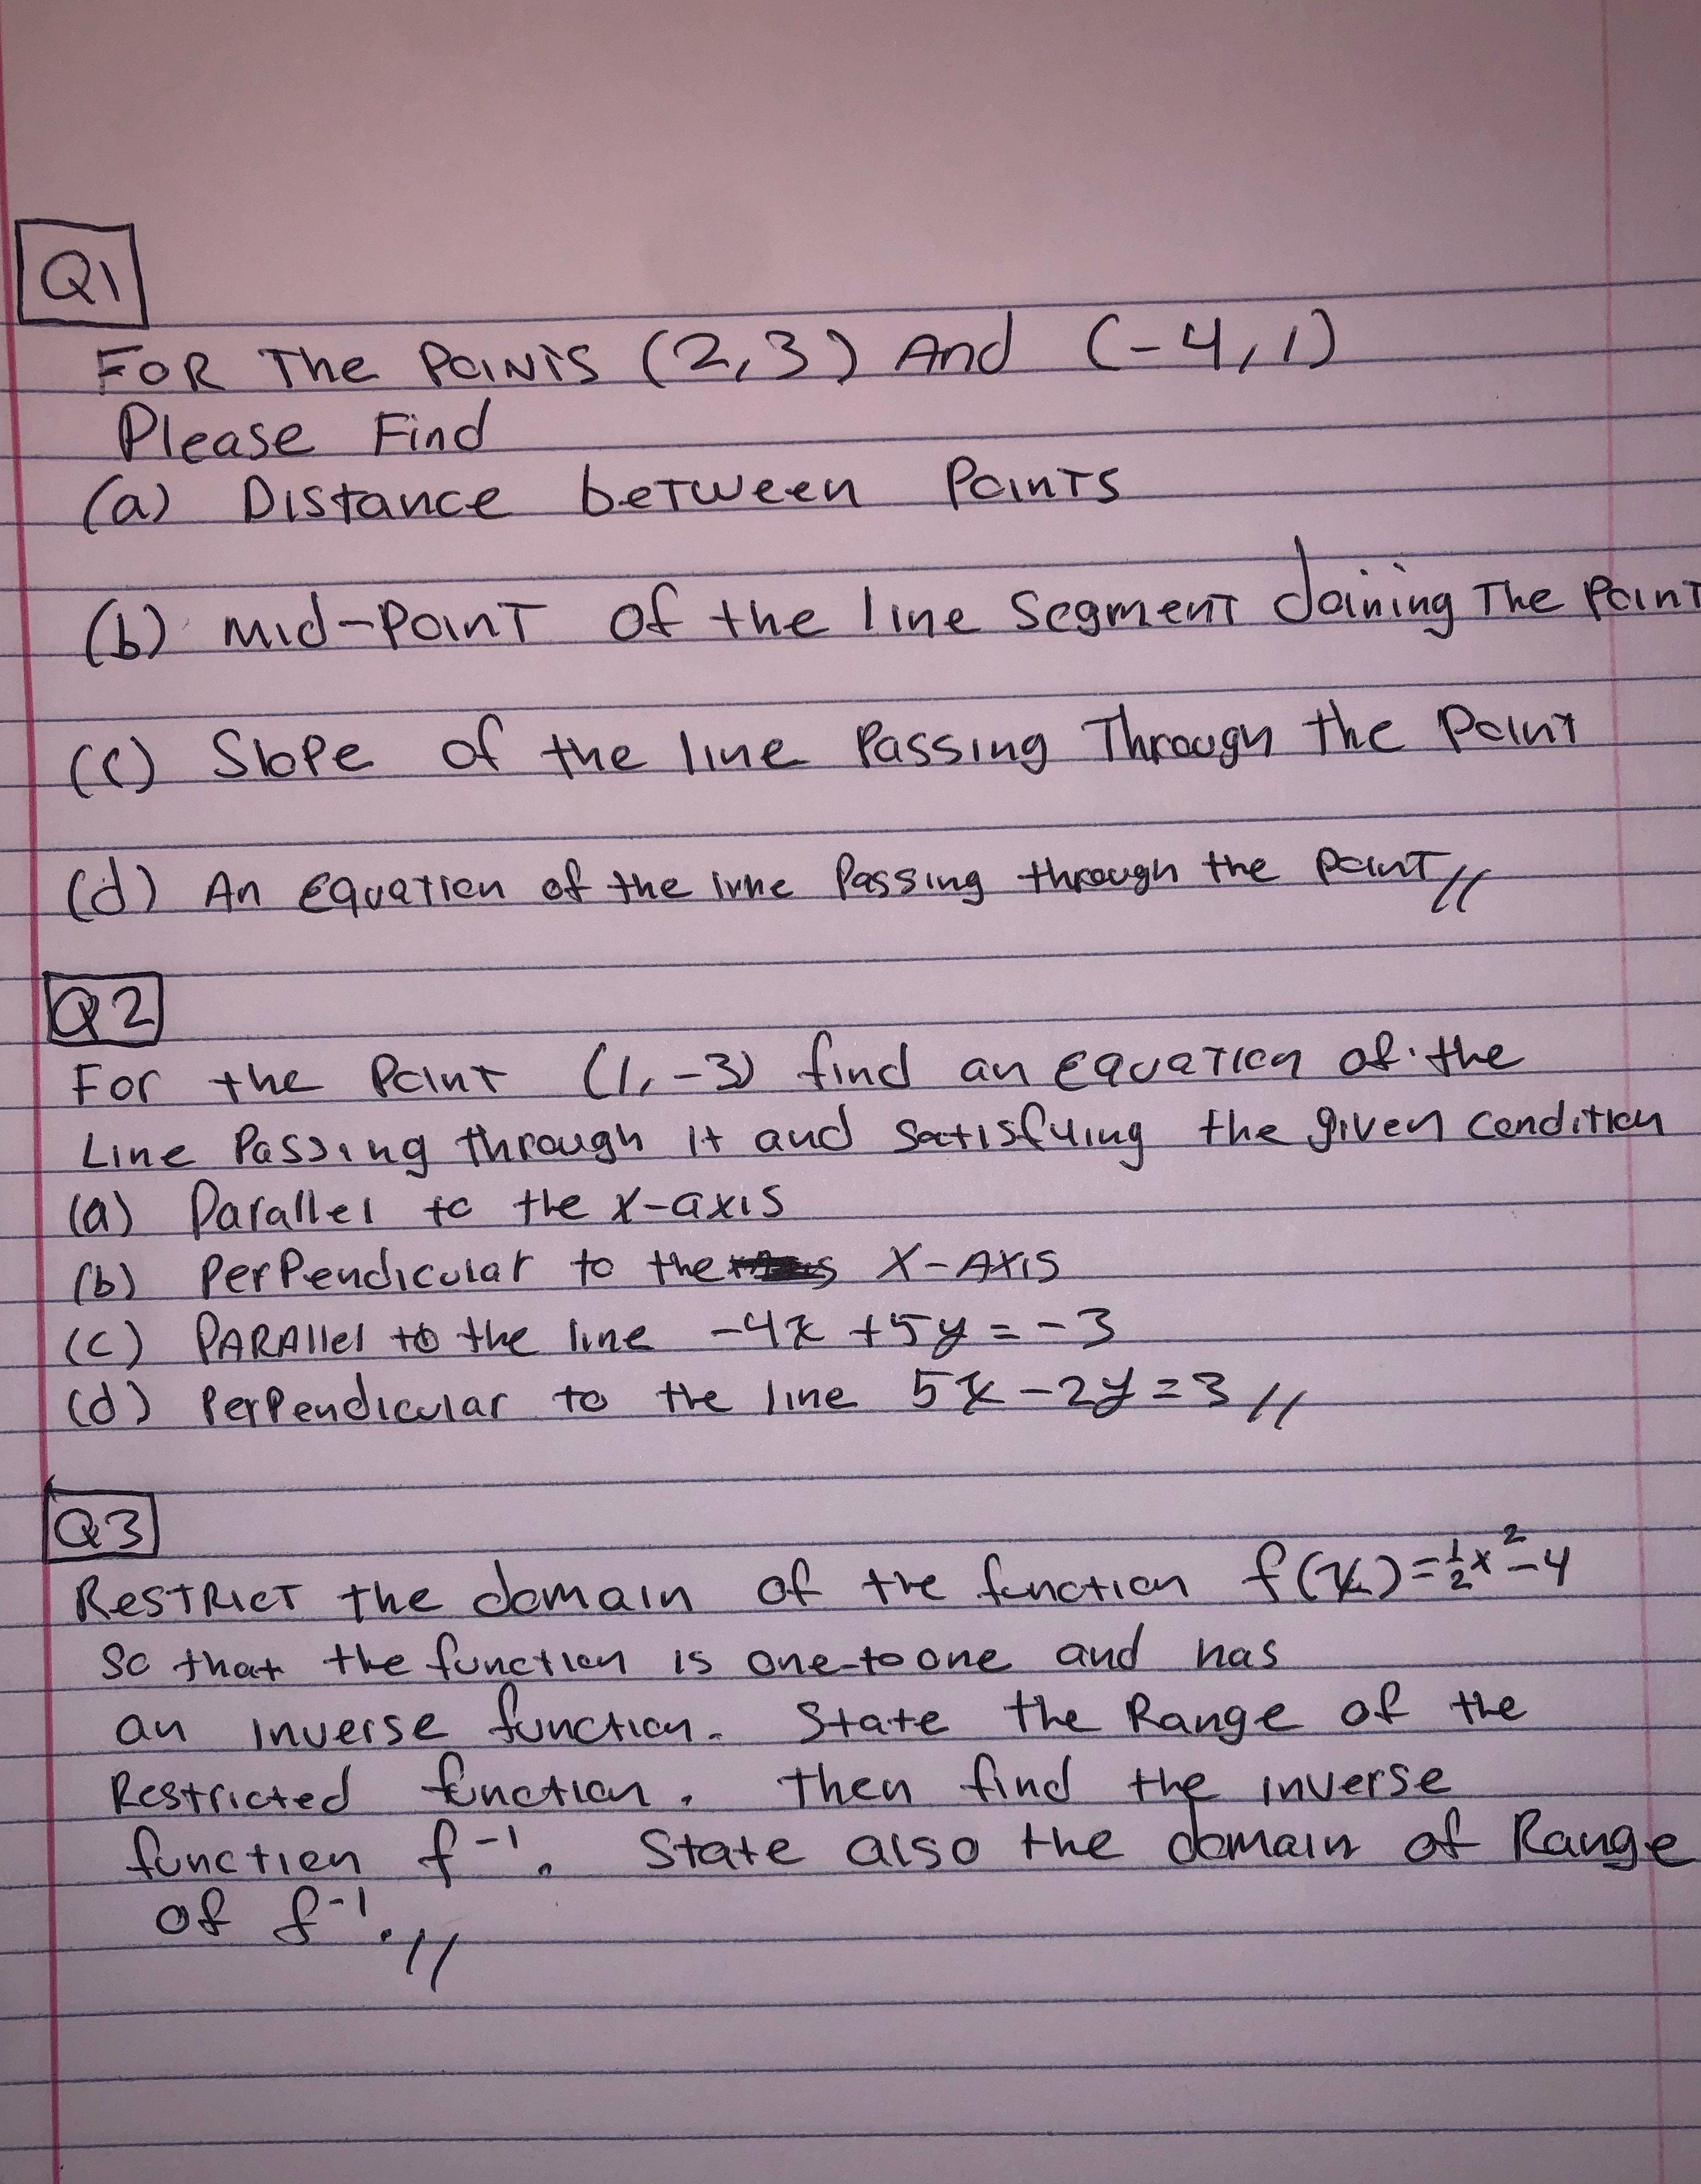 Q1
FOR The Points (2,3) And (-4,1)
Please Find
(a) Distance between Points
(b) Mid-Point of the line Segment Joining The Point
(c) Slope of the line Passing Through the Point
(d) An Equation of the line Passing through the Point //
Q2
For the Point (1,-3) find an equation of the
Line Passing through it and Satisfying the given condition
(a) Parallel to the x-axis
(b) Perpendicular to the X-AXIS
(c) PARAllel to the line -4x +5y = -3
(d) Perpendicular to the line 5x -2y = 3 //
Q3
RESTRICT the domain of the function f(x) = ½x² - 4
So that the function is one-to one and has
an inverse function. State the Range of the
Restricted function. Then find the inverse
function f⁻¹. State also the domain of Range
of f⁻¹. //